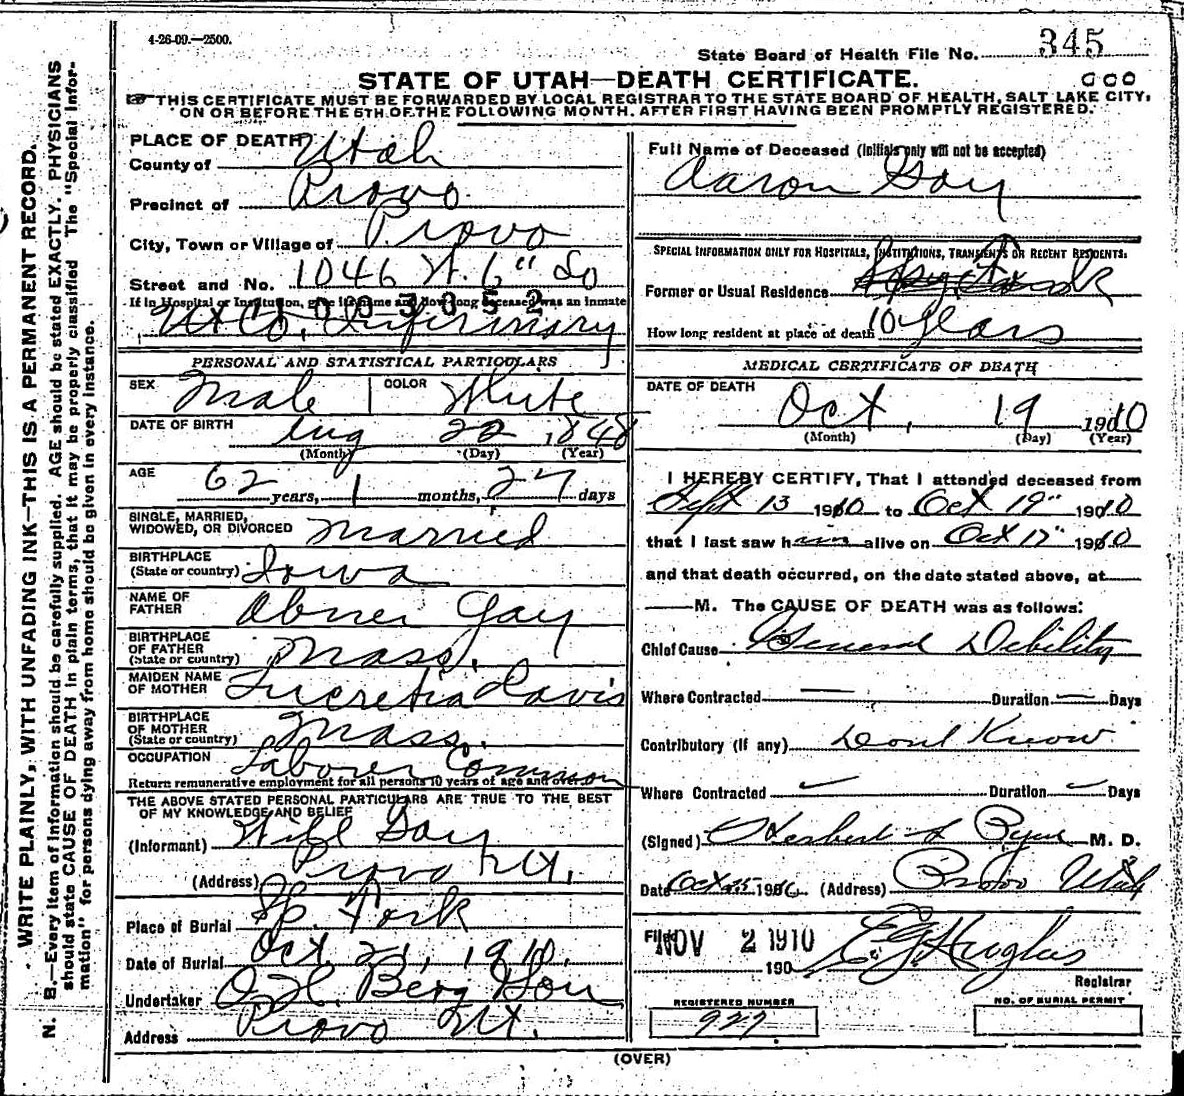 4-26-09.—2500.
State Board of Health File No. 345
STATE OF UTAH—DEATH CERTIFICATE.
THIS CERTIFICATE MUST BE FORWARDED BY LOCAL REGISTRAR TO THE STATE BOARD OF HEALTH, SALT LAKE CITY,
ON OR BEFORE THE 5TH OF THE FOLLOWING MONTH, AFTER FIRST HAVING BEEN PROMPTLY REGISTERED.
WRITE PLAINLY, WITH UNFADING INK—THIS IS A PERMANENT RECORD.
N. B.—Every item of information should be carefully supplied. AGE should be stated EXACTLY. PHYSICIANS
should state CAUSE OF DEATH in plain terms, that it may be properly classified The "Special Infor-
mation" for persons dying away from home should be given in every instance.
PLACE OF DEATH
County of Utah
Precinct of Provo
City, Town or Village of Provo
Street and No. 1046 W. 6" So
If in Hospital or Institution, give its name and how long deceased was an inmate
Ut Co. Infirmary
PERSONAL AND STATISTICAL PARTICULARS
SEX Male COLOR White
DATE OF BIRTH Aug 22 1848
(Month) (Day) (Year)
AGE 62 years, 1 months, 27 days
SINGLE, MARRIED,
WIDOWED, OR DIVORCED Married
BIRTHPLACE
(State or country) Iowa
NAME OF
FATHER Abner Gay
BIRTHPLACE
OF FATHER
(State or country) Mass.
MAIDEN NAME
OF MOTHER Lucretia Davis
BIRTHPLACE
OF MOTHER
(State or country) Mass.
OCCUPATION Laborer Common
Return remunerative employment for all persons 10 years of age and over
THE ABOVE STATED PERSONAL PARTICULARS ARE TRUE TO THE BEST
OF MY KNOWLEDGE AND BELIEF
(Informant) Gay
(Address) Provo Ut.
Place of Burial Sp. Fork
Date of Burial Oct. 21, 1910.
Undertaker Berg Son
Address Provo Ut.
Full Name of Deceased (Initials only will not be accepted)
Aaron Gay
SPECIAL INFORMATION ONLY FOR HOSPITALS, INSTITUTIONS, TRANSIENTS OR RECENT RESIDENTS.
Former or Usual Residence
How long resident at place of death 10 years
MEDICAL CERTIFICATE OF DEATH
DATE OF DEATH
Oct. 19 1910
(Month) (Day) (Year)
I HEREBY CERTIFY, That I attended deceased from
Sept 13 1910 to Oct 19" 1910
that I last saw him alive on Oct 17" 1910
and that death occurred, on the date stated above, at
M. The CAUSE OF DEATH was as follows:
Chief Cause General Debility
Where Contracted Duration Days
Contributory (if any) Dont Know
Where Contracted Duration Days
(Signed) Herbert S Pyne M. D.
Date Oct 25 1910 (Address) Provo Utah
Filed NOV 2 1910
190 E G Hughes
Registrar
REGISTERED NUMBER
927
NO. OF BURIAL PERMIT
(OVER)